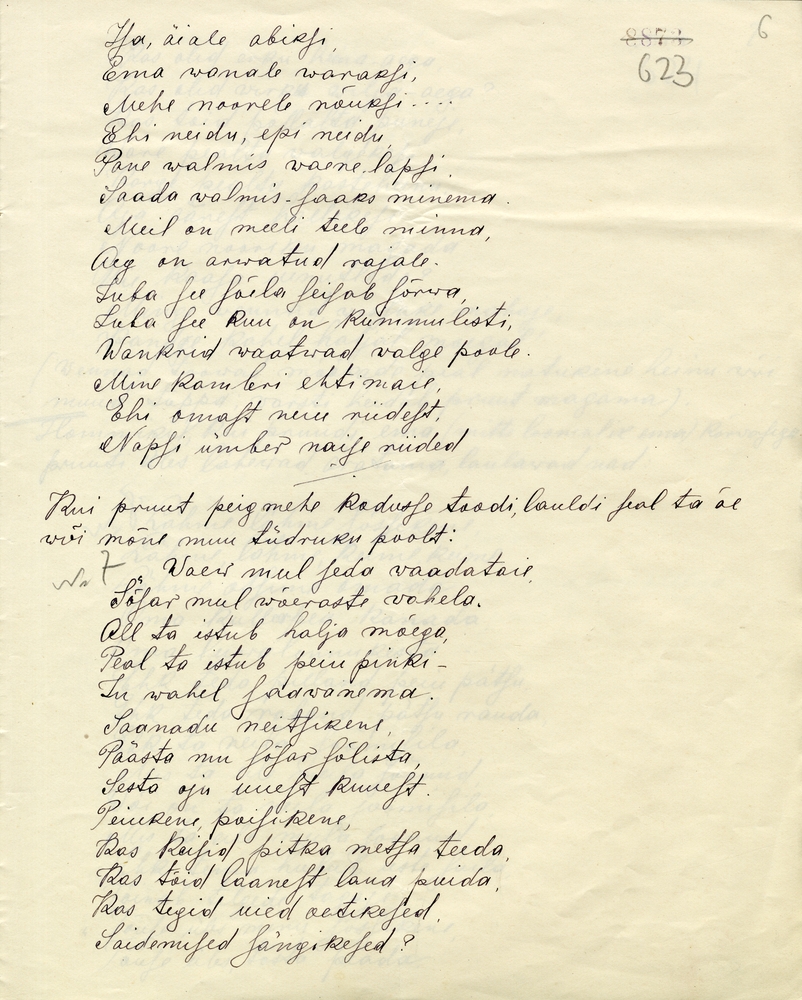 6
8873
623
Isa, äiale abiksi,
Ema wanale waraksi,
Mehe noorele nõuksi....
Ehi neidu, epi neidu,
Pane walmis waene lapsi.
Saada walmis-saaks minema.
Meil on meeli teele minna,
Aeg on arwatud rajale.
Juba see sõela seisab sõrwa,
Juba see kuu on kummulisti,
Wankrid waatwad valge poole.
Mine kamberi ehtimaie,
Ehi omast neiu riidest,
Napsi ümber naise riided
Kui pruut peigmehe kodusse toodi, lauldi seal ta õe
või mõne muu tüdruku poolt:
No 7. Waew mul seda vaadataie,
Sõsar mul wõeraste vahela.
All ta istub halja mõega,
Peal ta istub peiu pinki -
Ju wahel saawanema.
Saanadu neitsikene,
Päästa mu sõsar sõlista,
Sesta oju uuest kuuest.
Peiukene, poisikene,
Kas keisid pitka metsa teeda,
Kas tõid laanest laua puida,
Kas tegid uied oetikesed,
Saidemised sängikesed?